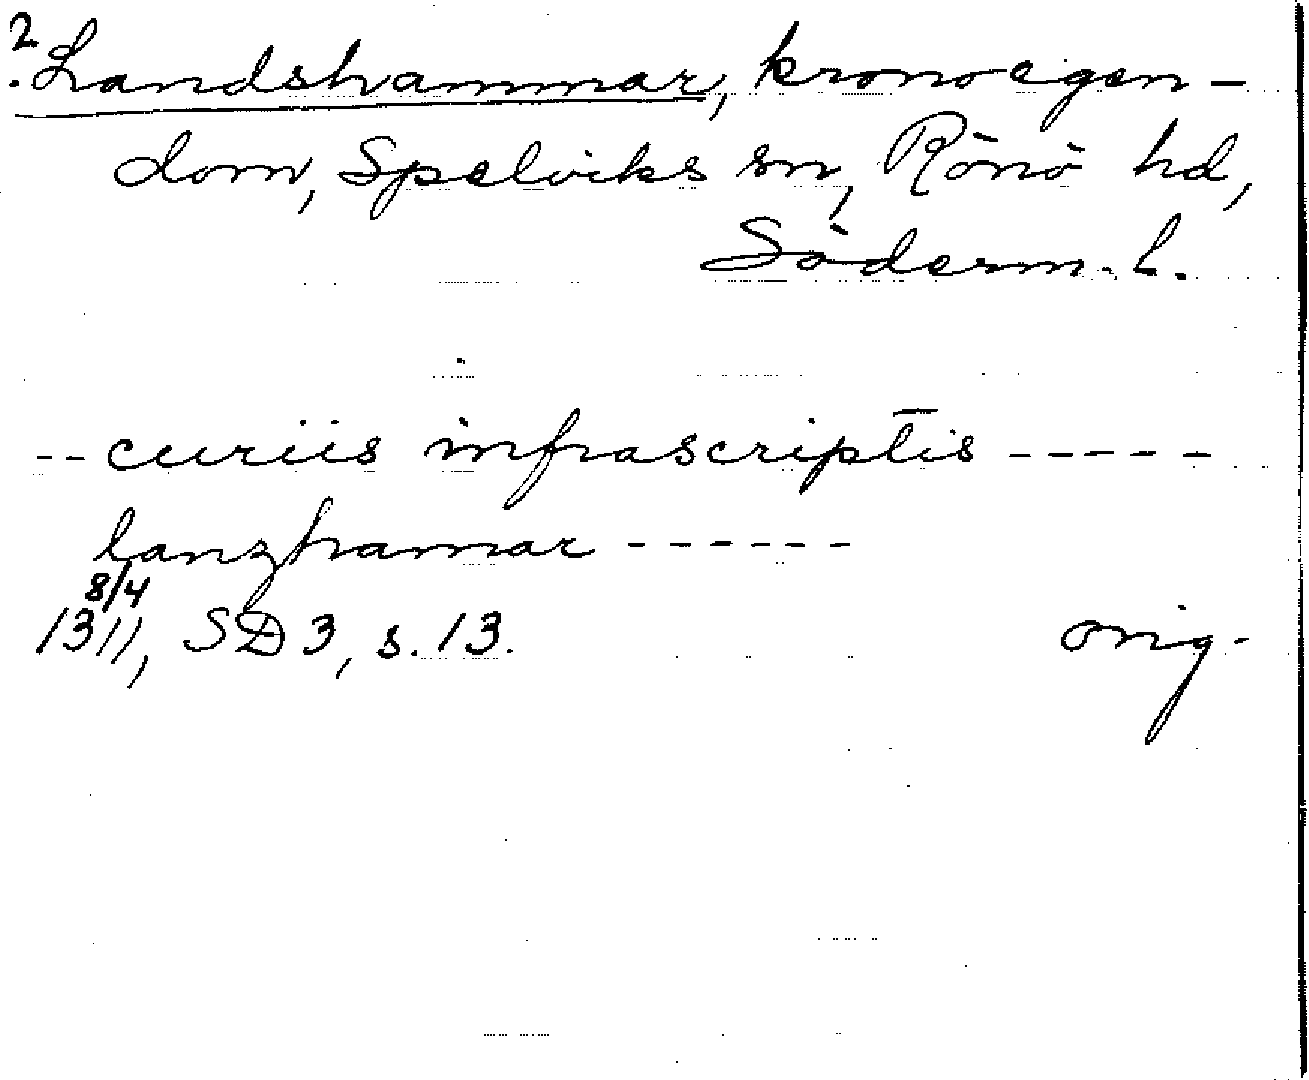 ? Landshammar, kronoegen-
dom, Spelviks sn, Rönö hd,
Söderm. l.
-- curiis infrascriptis -----
lanzhamar ------
8/4
1311, SD 3, s. 13. orig.